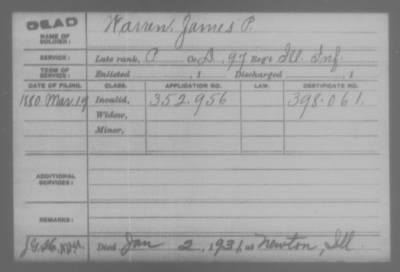 DEAD
NAME OF SOLDIER: Warren, James P.
SERVICE: Late rank, P Co. D, 97 Reg't Ill. Inf.
TERM OF SERVICE: Enlisted , 1 Discharged , 1
DATE OF FILING. CLASS. APPLICATION NO. LAW. CERTIFICATE NO.
1880 Mar. 19 Invalid, 352.956 398.061.
Widow,
Minor,
ADDITIONAL SERVICES:
REMARKS:
Died Jan 2, 1931, at Newton, Ill.